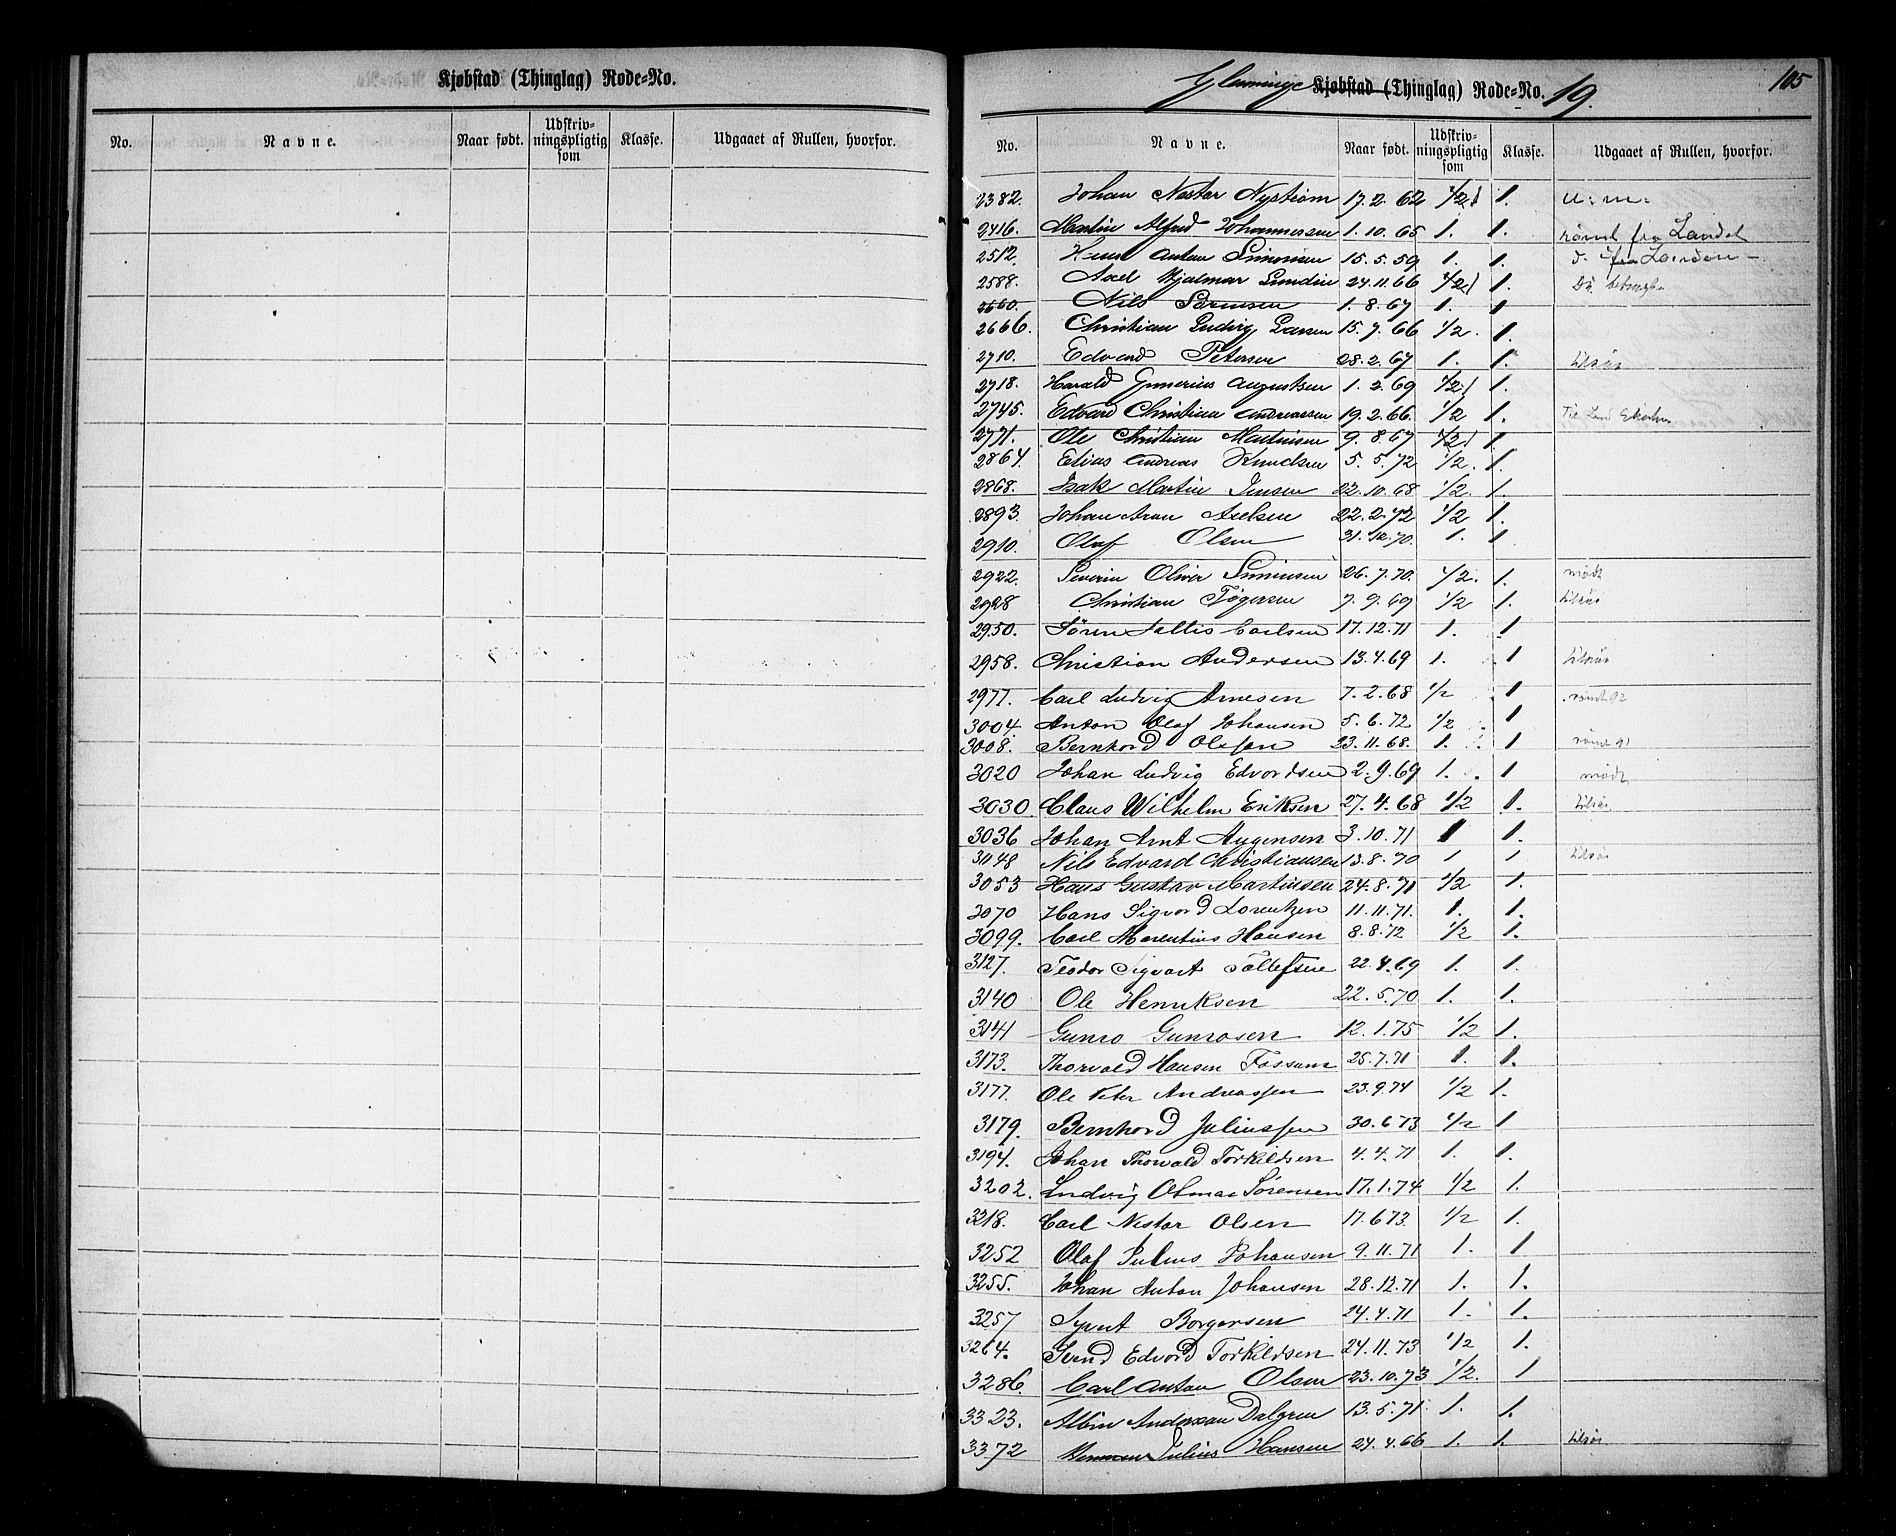 Kjøbstad (Thinglag) Rode-No.
No. Navne. Naar født. Udskrivningspligtig som Klasse. Udgaaet af Rullen, hvorfor.
Glemminge Kjøbstad (Thinglag) Rode-No. 19. 105
No. Navne. Naar født. Udskrivningspligtig som Klasse. Udgaaet af Rullen, hvorfor.
2382. Johan Nestor Nystrøm 17.2.62 1/2 1. u. m.
2416. Martin Alfred Johannessen 1.10.65 1. 1. rømt fra Landet
2512. Hans Anton Simonsen 15.5.59 1. 1.
2588. Axel Hjalmar Lundin 24.11.66 1/2 1.
2660. Nils Sørensen 1.8.67 1. 1
2666. Christian Ludvig Larsen 15.7.66 1/2. 1.
2710. Edvard Petersen 28.2.67 1. 1. tilsøs
2718. Harald Gunerius Augustsen 1.2.69 1/2 1.
2745. Edvard Christian Andreassen 19.2.66. 1/2 1.
2771. Ole Christian Martinsen 9.8.67 1/2 1.
2864. Elias Andreas Knudsen 5.5.72 1/2. 1.
2868. Isak Martin Jensen 22.10.68 1/2. 1.
2893. Johan Aron Axelsen 22.2.72 1/2 1.
2910. Olaf Olsen 31.12.70. 1. 1.
2922. Severin Oliver Simensen 26.7.70. 1/2. 1. mødt
2928 Christian Tøgersen 7.9.69 1/2 1. tilsøs
2950. Søren Carlsen 17.12.71 1. 1
2958. Christian Andersen 13.4.69 1. 1 tilsøs
2977. Carl Ludvig Arnesen 7.2.68 1/2 1 rømt 92
3004. Anton Olaf Johansen 5.6.72 1/2 1
3008. Bernhard Olesen 23.11.68. 1. 1 rømt 91
3020 Johan Ludvig Edvardsen 2.9.69 1. 1 mødt
3030. Claus Wilhelm Eriksen 27.4.68 1/2 1. tilsøs
3036 Johan Arnt Mogensen 3.10.71 1 1.
3048 Nils Edvard Christiansen 13.8.70 1 1 tilsøs
3053 Hans Gustav Martinsen 24.8.71 1/2 1.
3070 Hans Sigvard Lorentzen 11.11.71. 1. 1.
3099. Carl Marentius Hansen 8.8.72 1/2 1.
3127. Teodor Sigvart Tollefsen 22.4.69 1. 1.
3140 Ole Henriksen 22.5.70 1. 1.
3141 Gunro Gunrosen 12.1.75 1/2 1.
3173. Thorvald Hansen Fossum 25.7.71 1. 1.
3177. Ole Peter Andreassen 23.9.74 1/2 1.
3179. Bernhard Juliussen 30.6.73 1/2 1
3194. Johan Thorvald Torkildsen 4.4.71 1. 1.
3202. Ludvig Otmar Sørensen 17.1.74 1/2 1.
3218. Carl Nestor Olsen 17.6.73. 1/2 1.
3252 Olaf Julius Johansen 9.11.71 1. 1
3255. Johan Anton Johansen 28.12.71 1. 1.
3257 Syvert Borgersen 24.4.71 1. 1.
3264. Svend Edvard Torkildsen 24.11.73 1/2 1.
3286. Carl Anton Olsen 23.10.73 1/2. 1
3323. Albin Andersson Dalgren 13.5.71 1. 1.
3372 Herman Julius Hansen 24.4.66 1. 1. tilsøs